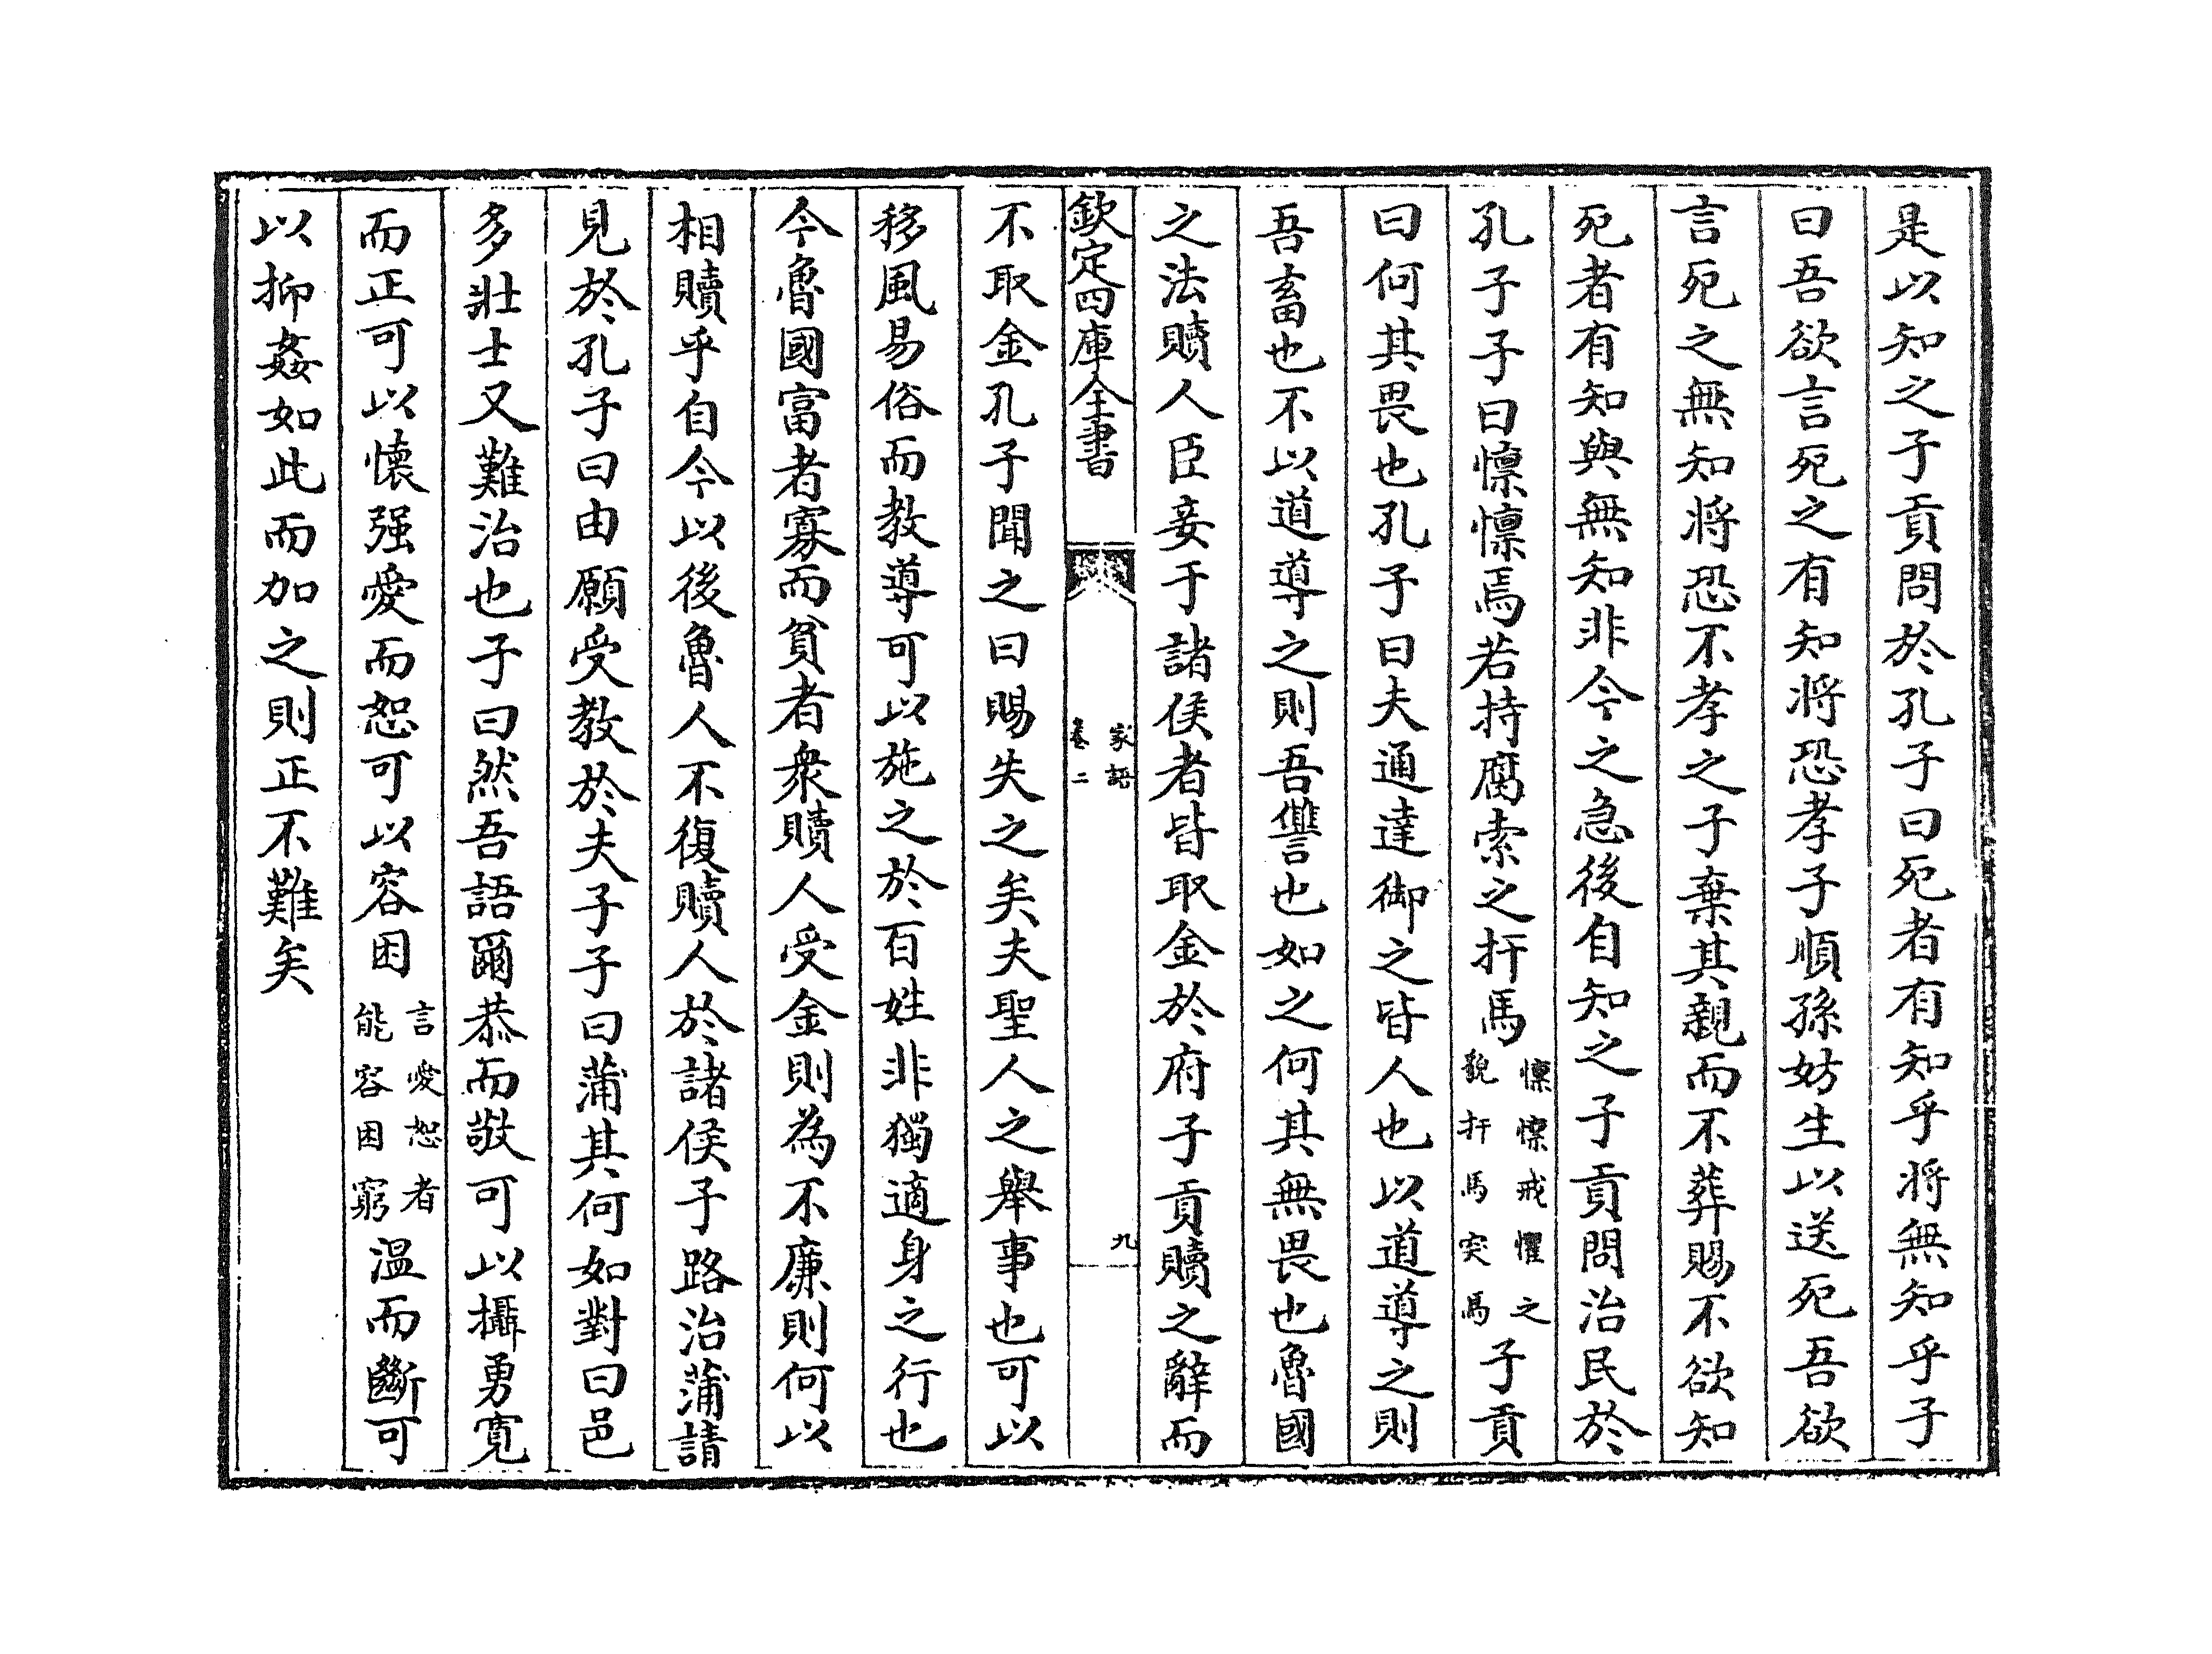 是以知之子貢問於孔子曰死者有知乎將無知乎子
曰吾欲言死之有知將恐孝子順孫妨生以送死吾欲
言死之無知將恐不孝之子棄其親而不葬賜不欲知
死者有知與無知非今之急後自知之子貢問治民於
孔子子曰懍懍焉若持腐索之扞馬懍懍戒懼之貌扞馬突馬子貢
曰何其畏也孔子曰夫通達御之皆人也以道導之則
吾畜也不以道導之則吾讐也如之何其無畏也魯國
之法贖人臣妾于諸侯者皆取金於府子貢贖之辭而
欽定四庫全書
家語
卷二
九
不取金孔子聞之曰賜失之矣夫聖人之舉事也可以
移風易俗而教導可以施之於百姓非獨適身之行也
今魯國富者寡而貧者衆贖人受金則為不廉則何以
相贖乎自今以後魯人不復贖人於諸侯子路治蒲請
見於孔子曰由願受教於夫子子曰蒲其何如對曰邑
多壯士又難治也子曰然吾語爾恭而敬可以攝勇寛
而正可以懐强愛而恕可以容困言愛恕者能容困窮溫而斷可
以抑姦如此而加之則正不難矣